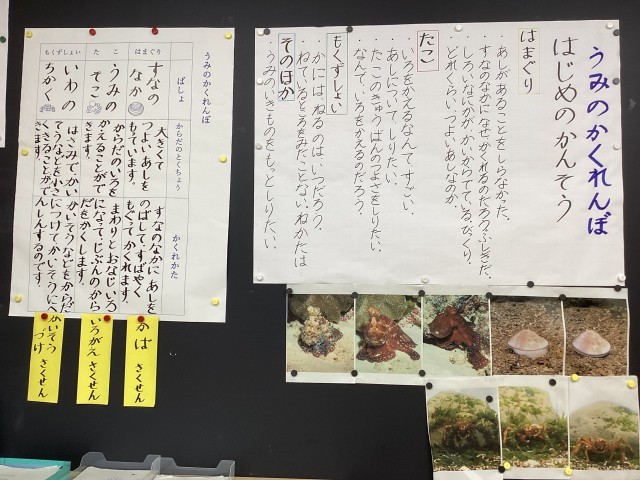 うみのかくれんぼ
はじめのかんそう
はまぐり
・あしがあることをしらなかった。
・すなのなかに、なぜかくれるのだろう。ふしぎだ。
・しろいなにかが、かいからでている。びっくり。
・どれくらい、つよいあしなのか。
たこ
・いろをかえるなんて、すごい。
・あしについて、しりたい。
・たこのきゅうばんのつよさをしりたい。
・なんで、いろをかえるのだろう。
もくずしょい
・かには、ねるのは、いつだろう。
・ねているところをみたことない。ねかたは
そのほか
・うみのいきものをもっとしりたい。
うみのかくれんぼ
ばしょ
からだのとくちょう
かくれかた
はまぐり
すなの
なか
大きくて
つよいあしを
もっています。
すなのなかに あしを
のばして、すばやく
もぐって かくれます。
さくせん
たこ
うみの
そこ
からだのいろを
かえることがで
きます。
まわりと おなじいろ
になって、じぶんのから
だをかくします。
いろがえ さくせん
もくずしょい
いわの
ちかく
はさみで、かい
そうなどを小さ
くきることがで
きます。
かいそうなどをからだ
につけて、かいそうに
へんしんするのです。
かいそう
づけ さくせん